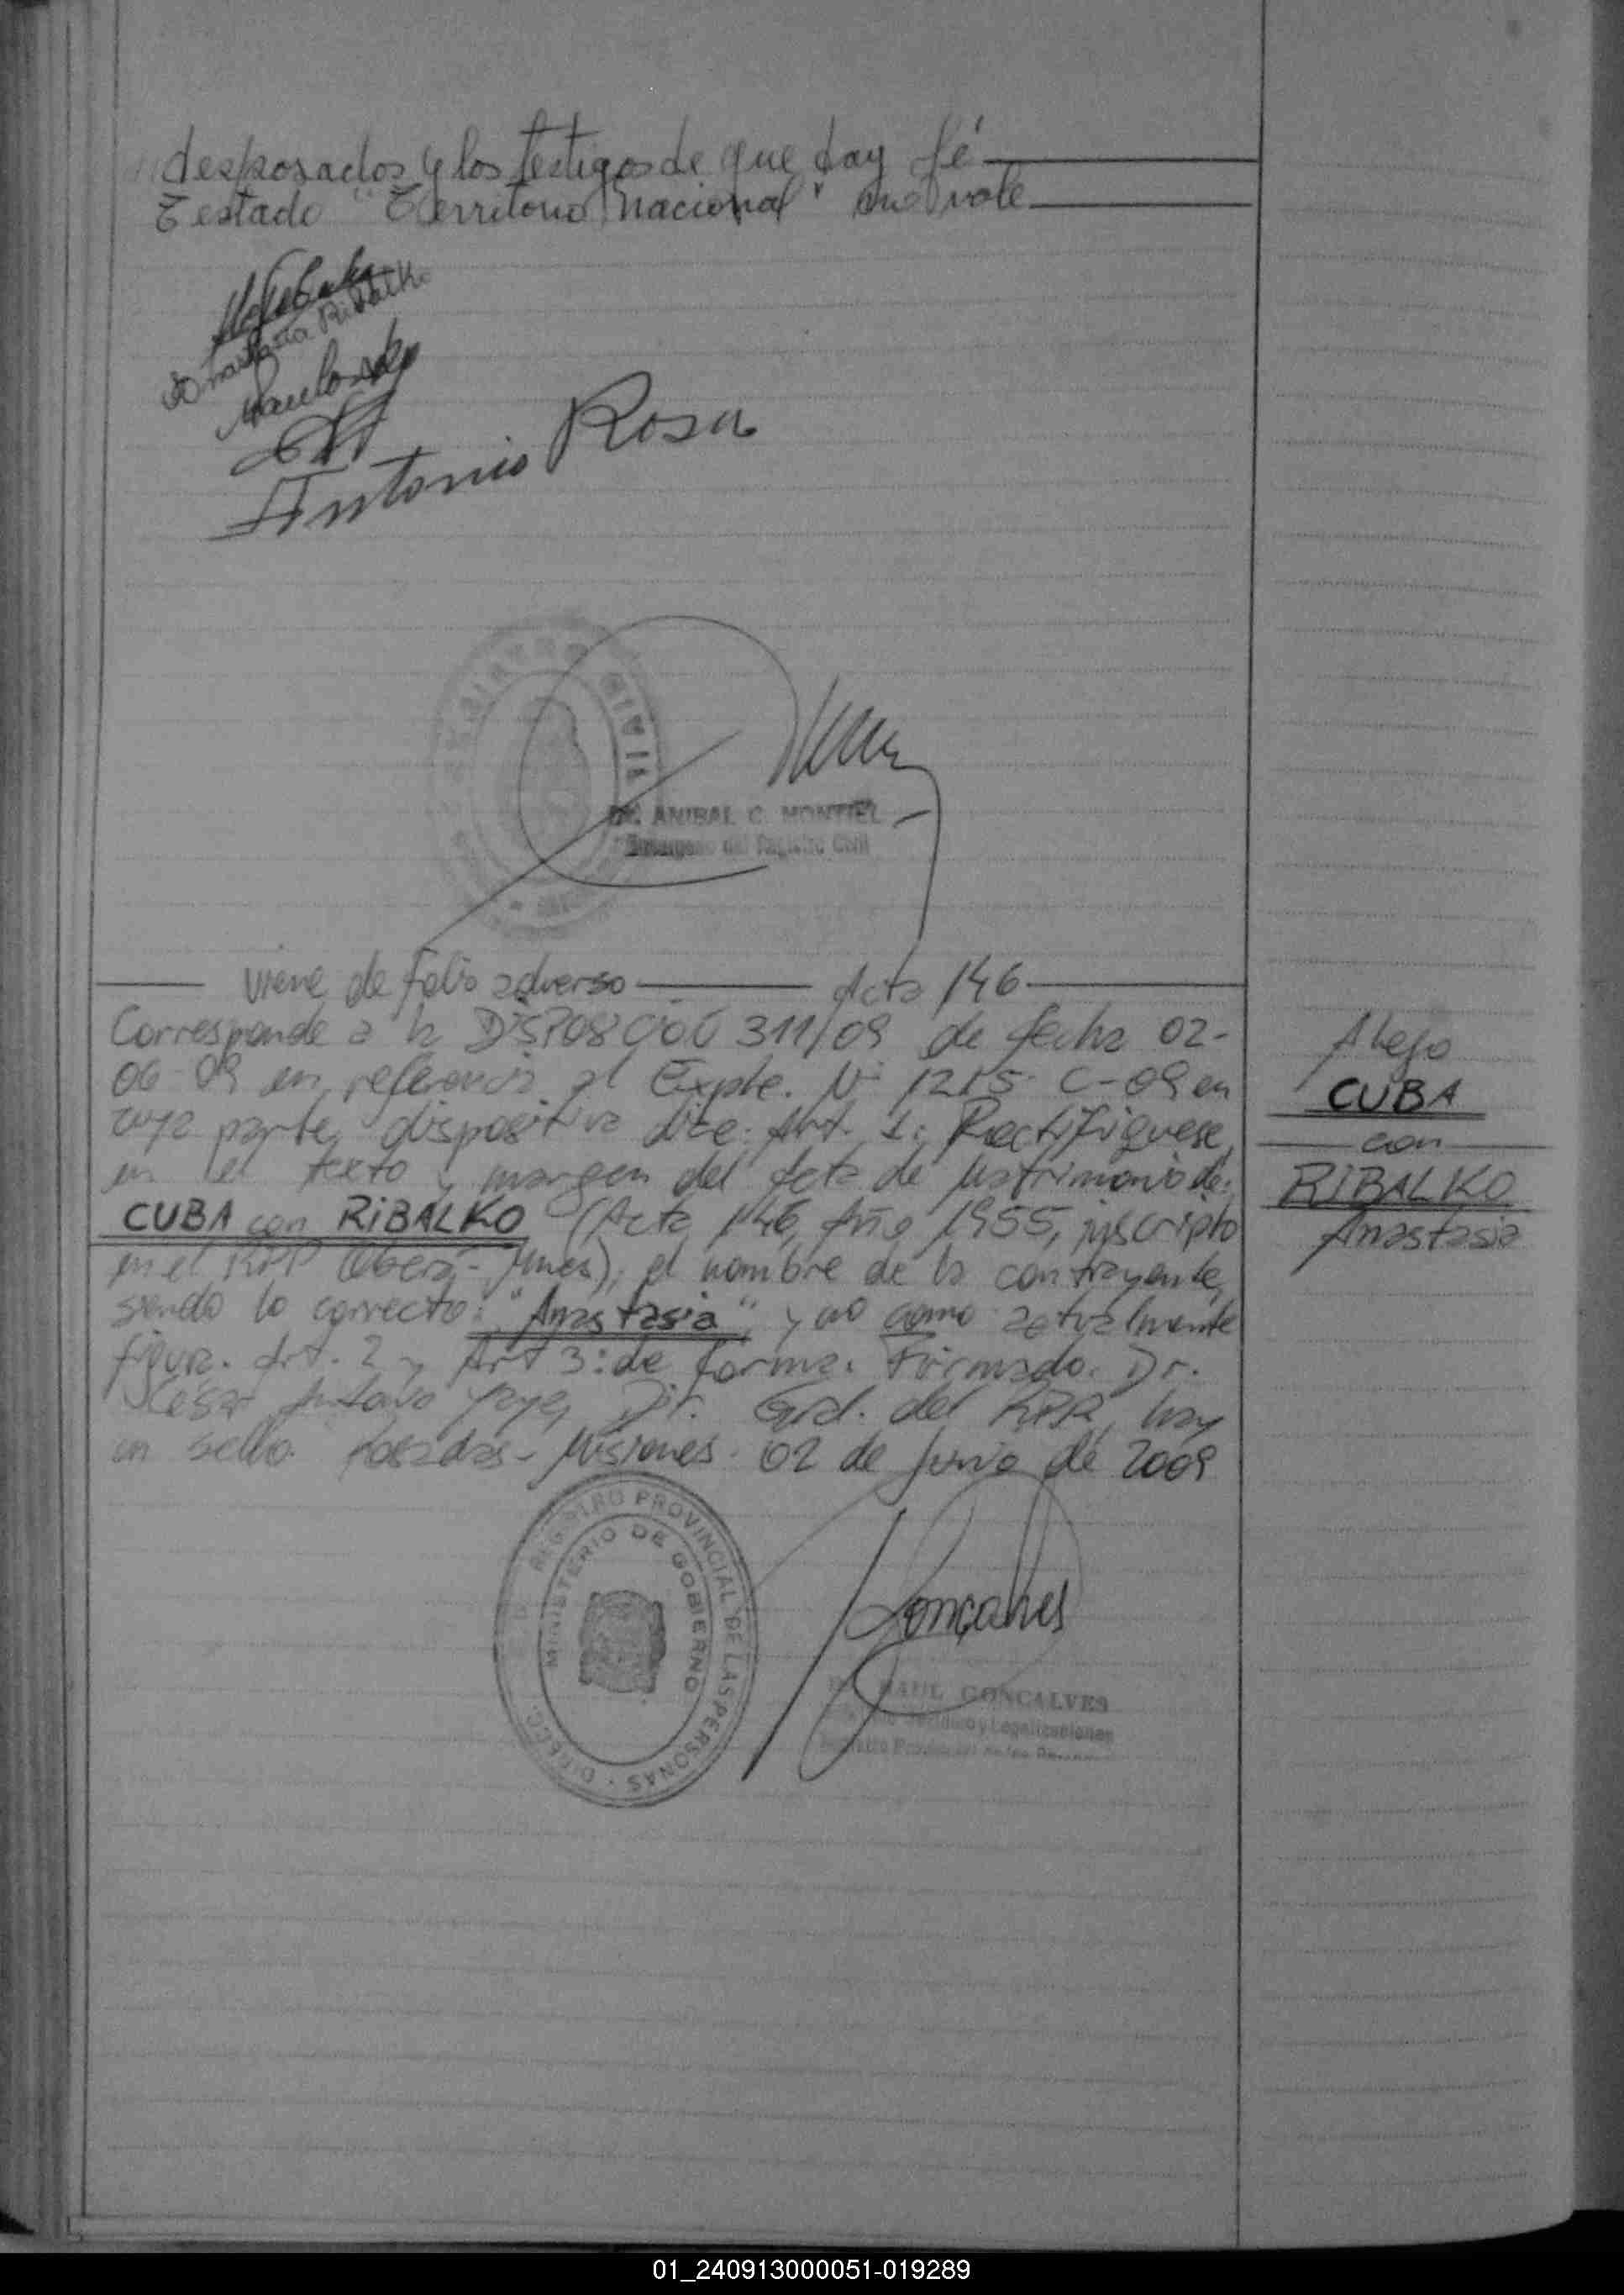 desposados y los testigos de que doy fé
Testado "Territorio nacional" no vale
Anastasia Ribalko
Antonio Rosa
DR. ANIBAL C. MONTIEL
Encargado del Registro Civil
Viene de Folio adverso Acta 146
Corresponde a la DISPOSICIÓN 311/09 de fecha 02-
06-09 en referencia al Expte. Nº 1215 C-09 en
cuya parte dispositiva dice: Art. 1: Rectifiquese
en el texto y margen del Acta de Matrimonio de:
CUBA con RiBALKO (Acta 146, Año 1955, inscripto
en el RPP Oberá-Mnes), el nombre de la contrayente,
siendo lo correcto: "Anastasia" y no como actualmente
figura. Art. 2 y Art 3: de forma. Firmado. Dr.
César Gustavo Dir. Gral. del RPP, hay
un sello. Posadas-Misiones. 02 de Junio de 2009
Alejo
CUBA
con
RiBALKO
Anastasia
REGISTRO PROVINCIAL DE LAS PERSONAS · DIRECC.
MINISTERIO DE GOBIERNO
Gonçalves
RAUL GONCALVES
y Legalizaciones
Registro Provincial de las
01_240913000051-019289